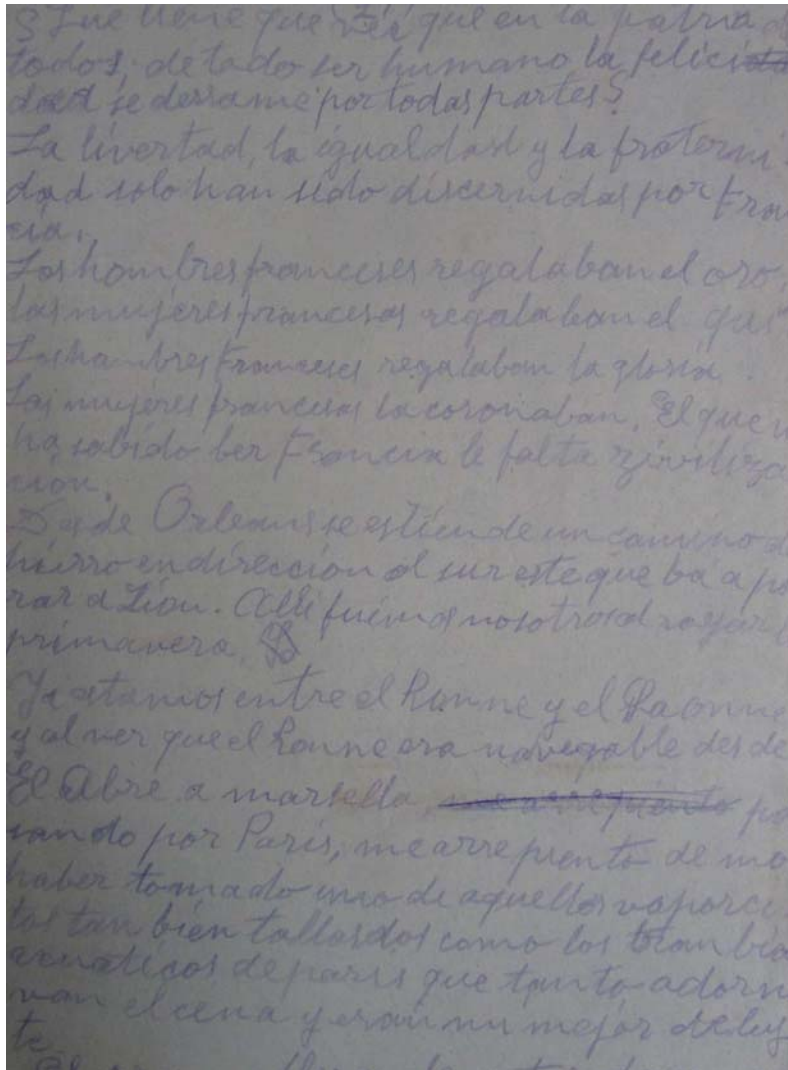 ¿Que tiene que ver que en la patria de
todos, de todo ser humano la felici
dad se derrame por todas partes?
La livertad, la igualdad y la fraterni
dad solo han sido discernidas por Fran
cia.
Los hombres franceses regalaban el oro,
las mujeres francesas regalaban el
Los hombres Franceses regalaban la gloria.
Las mujeres francesas la coronaban. El que n
ha sabido ber Francia le falta ziviliza
cion.
Desde Orleans se estiende un camino d
hierro en dirección al sur este que ba a pa
rar a Lion. Alli fuimos nosotros a
primavera.
Ya estamos entre el Ronne y el Raonne
y al ver que el Ronne era navegable desde
El Abre a marsella, me arrepiento pa
sando por Paris, me arrepiento de no
haber tomado uno de aquellos vaporci
tos tan bien tallados como los tranbia
acuaticos de paris que tanto adorn
van el cena y eran mi mejor deley
te.